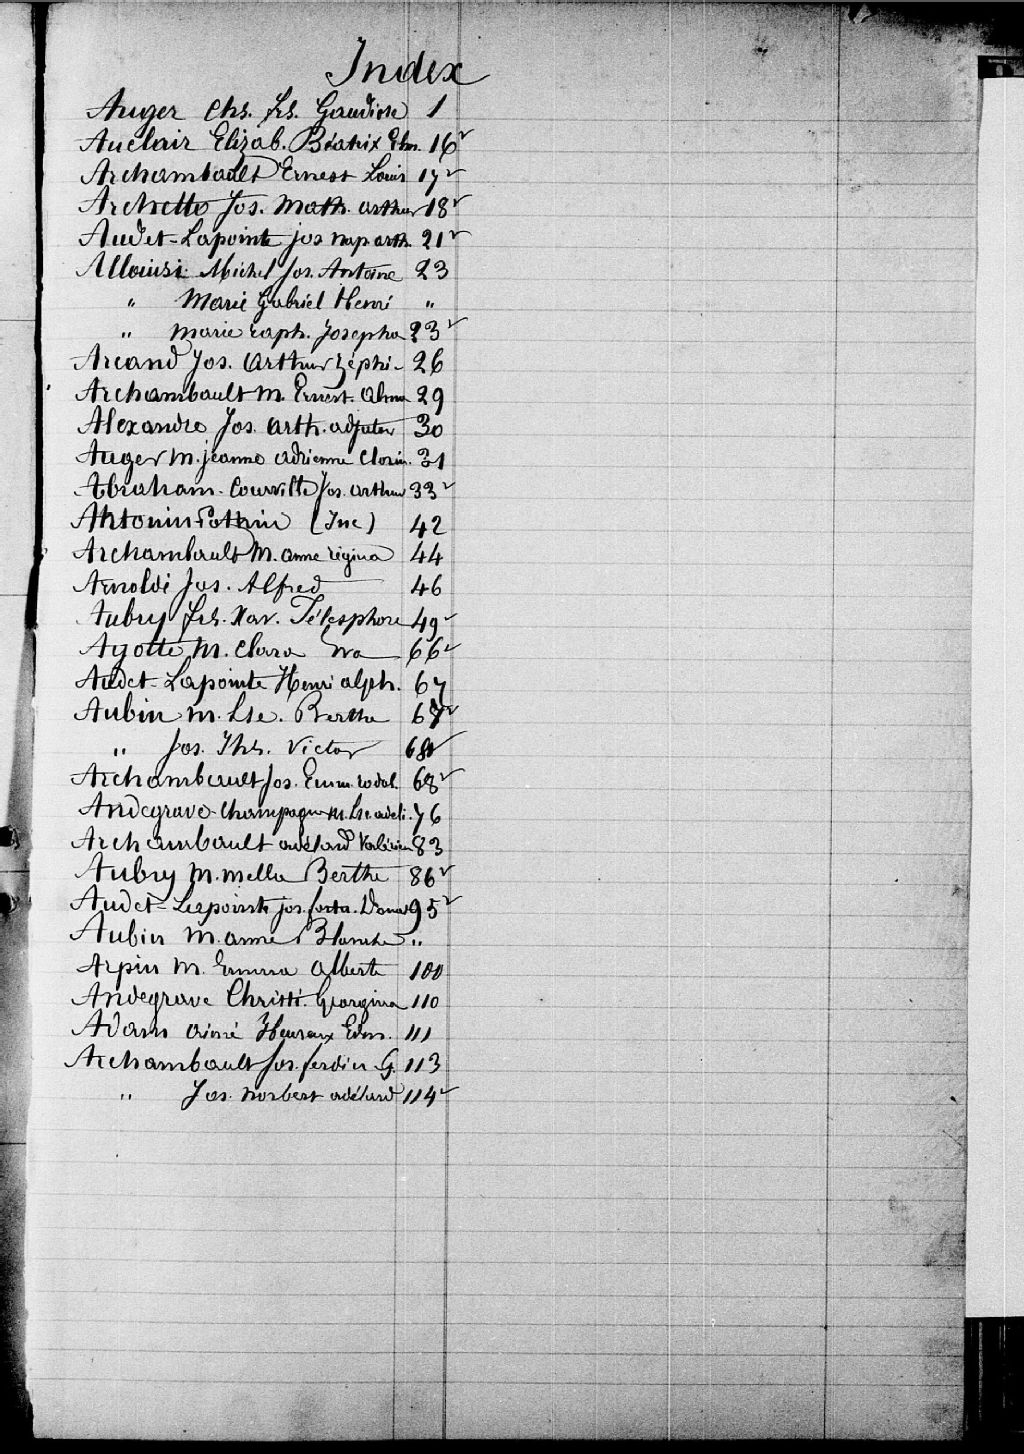 Index
Auger Chs. Frs. Gaudiose 1
Auclair Elizab. Béatrix Elm. 16v
Archambault Ernest Louis 17v
Archette Jos. Math. Arthur 18v
Audet-Lapointe Jos Nap arth. 21v
Allouisi Michel Jos. Antoine 23
" Marie Gabriel Henri "
" Marie Raph. Josepha 23v
Arcand Jos. Arthur Zéphi- 26
Archambault M. Ernest. Alma 29
Alexandre Jos. Arth. adjutor 30
Auger M. Jeanne Adrienne Clorin. 31
Abraham-Courville Jos. Arthur 33v
Antonin Pothin (Inc) 42
Archambault M. Anne Régina 44
Arnoldi Jos. Alfred 46
Aubry Frs. Xav. Télesphore 49v
Ayotte M. Clara Eva 66v
Audet-Lapointe Henri alph. 67
Aubin M. Lse. Berthe 67v
" Jos. Ths. Victor 68v
Archambault Jos. Emm. rodol. 68v
Andegrave-Champagne M. Lse. adéli. 76
Archambault adélard Valérien 83
Aubry M. Mella Berthe 86v
Audet-Lapointe Jos. 95v
Aubin M. anne Blanche "
Arpin M. Emma Alberte 100
Andegrave Christi. Georgina 110
Adam aimé Heureux Edm. 111
Archambault Jos. ferdin G. 113
" Jos. Norbert adélard 114v